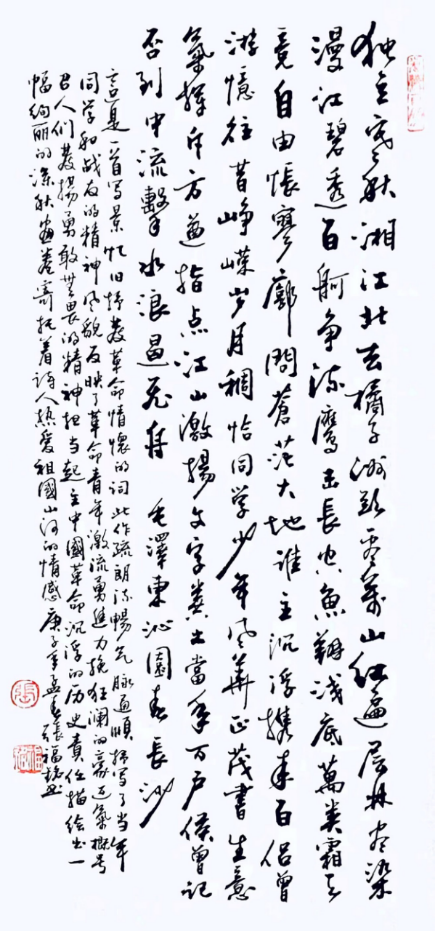 独立寒秋湘江北去橘子洲头看萬山红遍层林尽染
漫江碧透百舸争流鹰击長空魚翔浅底萬类霜天
竞自由怅寥廓問蒼茫大地谁主沉浮携来百侣曾
游憶往昔峥嵘岁月稠恰同学少年风華正茂書生意
氣挥斥方遒指点江山激揚文字粪土當年万户侯曾记
否到中流擊水浪遏飛舟 毛澤東沁園春長沙
这是一首写景忆旧抒發革命情懷的词此作疏朗流暢气脉通順描写了当年
同学和战友的精神风貌反映了革命青年激流勇進力挽狂澜的豪迈氣概号
召人们發揚勇敢无畏的精神担当起主中國革命沉浮的历史责任描绘出一
幅绚丽的深秋画卷寄托着诗人热爱祖國山河的情感庚子年孟春張福